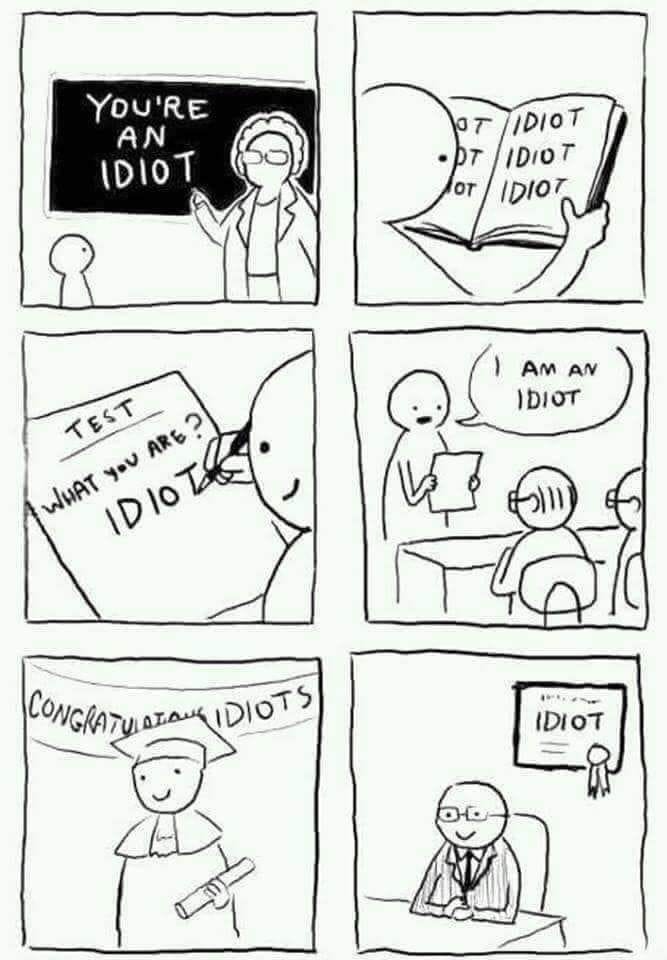 YOU'RE
AN
IDIOT
OT IDIOT
OT IDIOT
OT IDIOT
TEST
WHAT YOU ARE?
IDIOT
I AM AN
IDIOT
CONGRATULATIONS IDIOTS
IDIOT